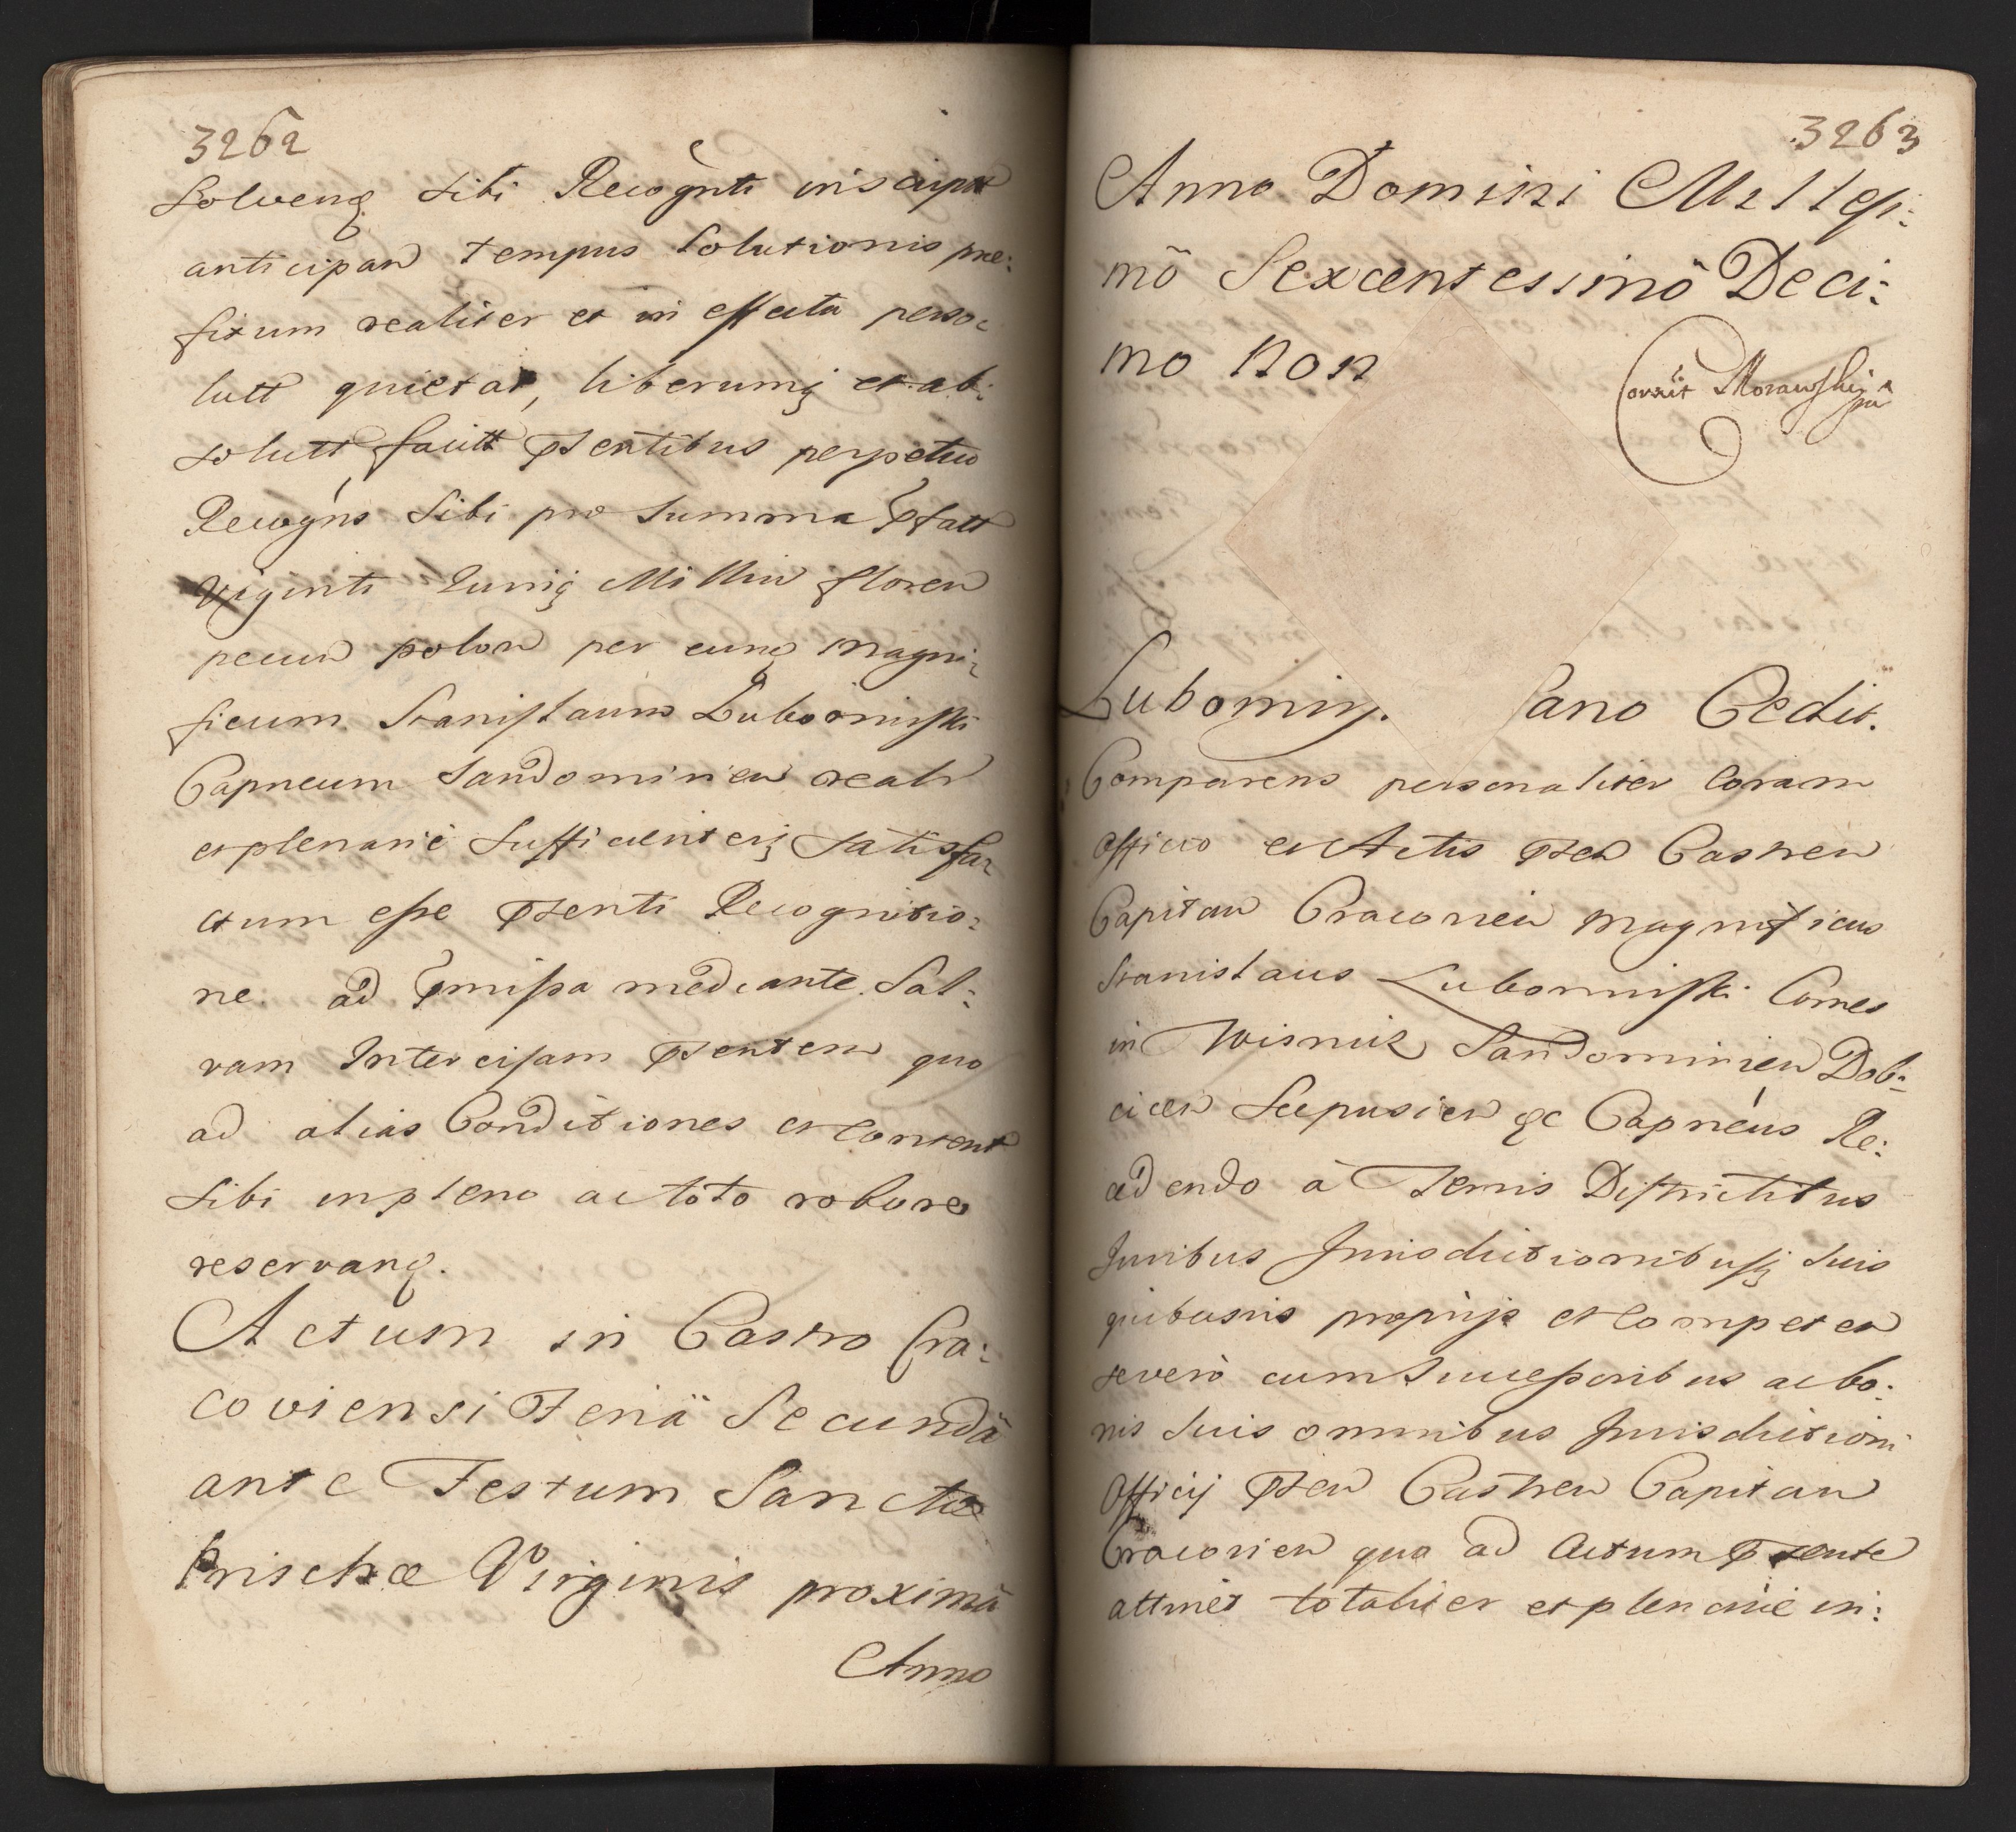 3262
Solvenq sibi Recognti inscript
anticipan tempus Solutionis pre:
fixum realiter et in effectu perso:
lutt quietat, liberumq et ab:
solutt facitt psentibus perpetuo
Recogns Sibi pro Summa pfatt
Viginti Millin floren
pecun polon per eund Magni:
ficum Stanislaum Lubomirski
Capneum Sandomirien reali
et plenarie Sufficienterq satisfa:
ctum esse psenti Recognitio:
ne ad pmissa mediante. Sal:
vam Intercisam psentem quo
ad alias Conditiones et Content
Sibi in pleno ac toto robore
reservanq.
Actum in Castro Cra:
coviensi Feriâ Secundâ
ante Festum Sanctæ
Prischæ Virginis proximâ
Anno
3263
Anno Domini Millesi:
mô Sexcentessimô Deci:
mo Non
Corrxit Morawski mp
Lubomirs. sano Cedit.
Comparens personaliter Coram
Officio et Actis psen Castren
Capitan Cracovien Magnificus
Stanislaus Lubomirski Comes
in Wisnicz Sandomirien Dob:
cicen Scepusien &c Capneus Re:
cedendo à Terris Districtibus
Juribus Jurisdictionibusq Suis
quibusvis proprijs et Competen
se vero cum Successoribus ac bo:
nis Suis omnibus Jurisdictioni
Officij psen Castren Capitan
Cracovien quo ad Actum psente
attinet totaliter et plenarie in: